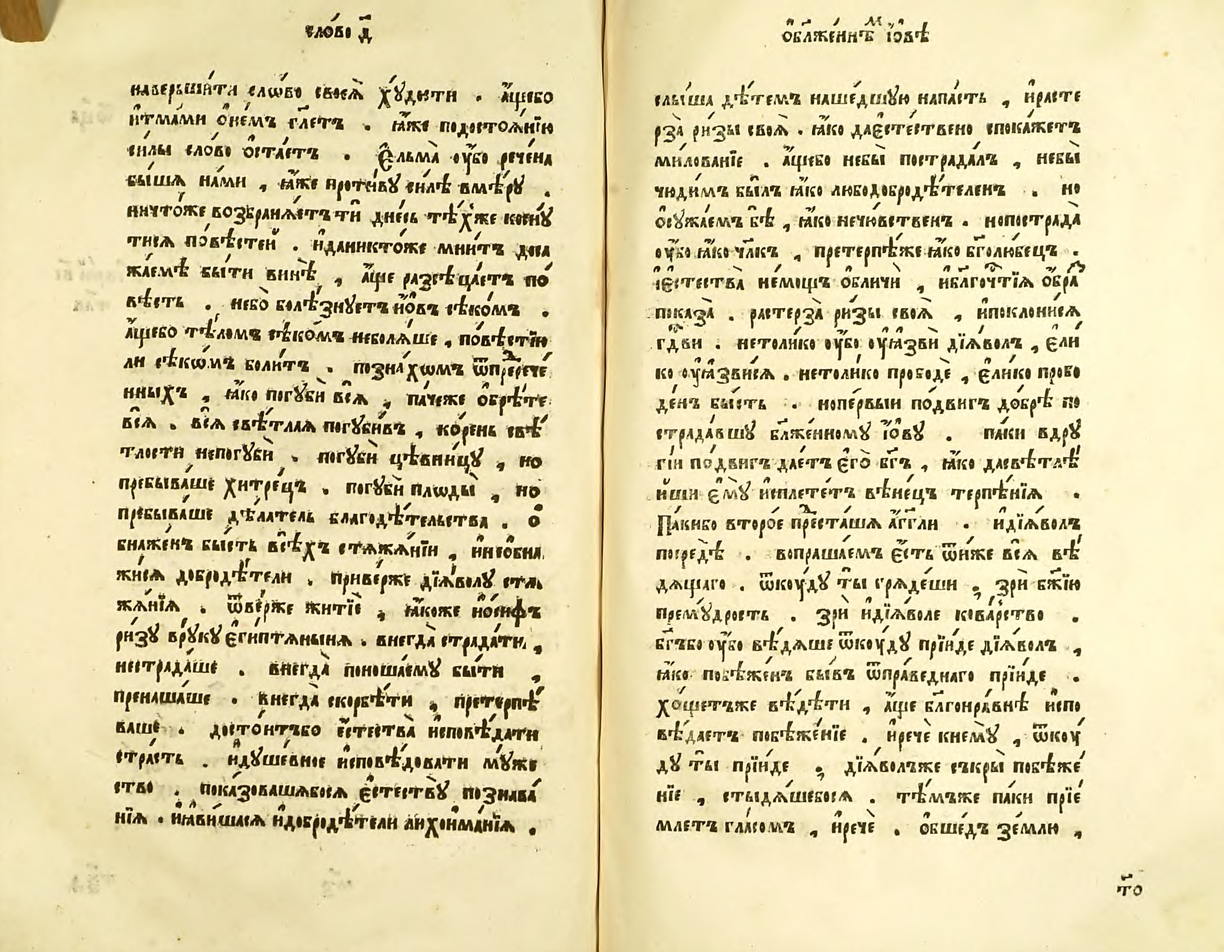 сло́во д҃
наверши́ти сло́во своеѧ̀ хꙋ́дости . а҆́щебо
и҆тма́ми ѡ҆не́мъ гл҃етъ . ꙗ҆́же подостоѧ́нїю
си́лы сло́во ѡ҆ста́етъ . Є҆льма̀ ᲂу҆́бо рече́на
бы́шѧ на́ми , ꙗ҆́же проти́вꙋ си́лѣ вмѣ́рꙋ .
ничто́же возбранѧ́етъ ти̑ дне́сь тѣ́хже косну́
тисѧ по́вѣстей . и҆данікто́же мни́тъ доса
жа́емѣ бы́ти винѣ̀ , а҆́ще разсѣца́етъ по́
вѣсть . небо̀ болѣ́знꙋетъ і҆́ѡвъ сѣко́мъ .
а҆́щебо тѣ́ломъ сѣко́мъ неболѧ́ше , по́вѣстїю
ли сѣко́мъ боли́тъ . позна́хѡмъ ѿпреⷣрече́
нныхъ , ꙗ҆́ко погꙋбѝ всѧ̑ , па́чеже ѡ҆брѣ́те
всѧ̑ . всѧ̑ свѣ́тлаѧ погꙋби́въ , ко́рень свѣ́
тлости непогꙋбѝ . погꙋбѝ цѣвни́цꙋ , но
пребыва́ше хи́трецъ . погꙋбѝ плоды̀ , но
пребыва́ше дѣ́латель благодѣ́тельства . ѡ҆
бнаже́нъ бы́сть всѣ́хъ стѧжа́нїи , инеѡбна
жи́сѧ добродѣ́тели . приве́рже дїѧ́волꙋ стѧ
жа́нїѧ . ѿве́рже житїѐ , ꙗ҆́коже і҆о́сифъ
ри́зꙋ врꙋ́кꙋ є҆гі́птѧнынѧ . внегда̀ страда́ти ,
нестрада́ше . внегда̀ поноша́емꙋ бы́ти ,
пренаша́ше . внегда̀ скорбѣ́ти , претерпѣ́
ваше . досто́итъбо є҆стества̀ и҆сповѣ́дати
стра́сть . и҆дꙋше́вное и҆сповѣ́довати мꙋ́же
ство . показова́шѧбосѧ є҆стествꙋ̀ познава́
нїѧ . и҆ꙗви́шасѧ и҆добродѣ́тели лихоима́нїѧ .
ѡ҆блаже́ннѣⷨ і҆́ѡвѣ
слы́ша дѣ́темъ наше́дшꙋю напа́сть , и҆расте
рза̀ ри́зы своѧ̑ . ꙗ҆́ко дає҆сте́ствено спока́жетъ
милова́нїе . а҆́щебо небы̀ пострада́лъ , небы̀
чюди́мъ бы́лъ ꙗ҆́ко любодобродѣ́теленъ . но
ѡ҆сꙋжа́емъ бѣ̀ , ꙗ҆́ко нечю́вственъ . нопострада̀
ᲂу҆́бо ꙗ҆́ко чл҃къ , претерпѣ́же ꙗ҆́ко бг҃олю́бецъ .
і҆є҆стества̀ не́мощъ ѡ҆бличѝ , и҆благоче́стїѧ ѡ҆́браⷥ
показа̀ . растерза̀ ри́зы своѧ̑ , и҆поклони́сѧ
гдⷭ҇ви . нето́лико ᲂу҆́бо ᲂу҆ꙗзвѝ дїѧ́волъ , є҆ли́
ко ᲂу҆ꙗзви́сѧ . нето́лико прободѐ , є҆ли́ко пробо
де́нъ бы́сть . нопе́рвыи по́двигъ до́брѣ по
страда́вшꙋ бл҃же́нномꙋ і҆́ѡвꙋ . па́ки вдрꙋ
гі́и по́двигъ дае́тъ є҆го̀ бг҃ъ , ꙗ҆́ко дасвѣ́тлѣ
йши є҆мꙋ̀ и҆сплете́тъ вѣне́цъ терпѣ́нїѧ .
Па́кибо второ́е преⷣста́шѧ а҆́гг҃ли . и҆дїѧ́волъ
посредѣ̀ . вопраша́емъ є҆́сть ѿи҆́же всѧ̑ вѣ́
дѧщаго . ѿкꙋ́дꙋ ты̀ грѧде́ши ; зрѝ бж҃їю
премꙋ́дрость . зрѝ и҆дїѧ́воле кова́рство .
бг҃ъбо ᲂу҆́бо вѣ́дѧше ѿкꙋ́дꙋ прїи́де дїѧ́волъ ,
ꙗ҆́ко побѣже́нъ бы́въ ѿпра́веднаго прїи́де .
хо́щетъже вѣ́дѣти , а҆́ще благонра́внѣ и҆спо
вѣ́даетъ побѣже́нїе . и҆речѐ кнемꙋ̀ , ѿкꙋ́
дꙋ ты̀ прїи́де ; дїѧ́волъже съкры̀ побѣже́
нїе , стыдѧ́шебосѧ . тѣ́мъже па́ки прїе
млетъ гла́сомъ , и҆речѐ . ѡ҆бше́дъ зе́млю ,
то